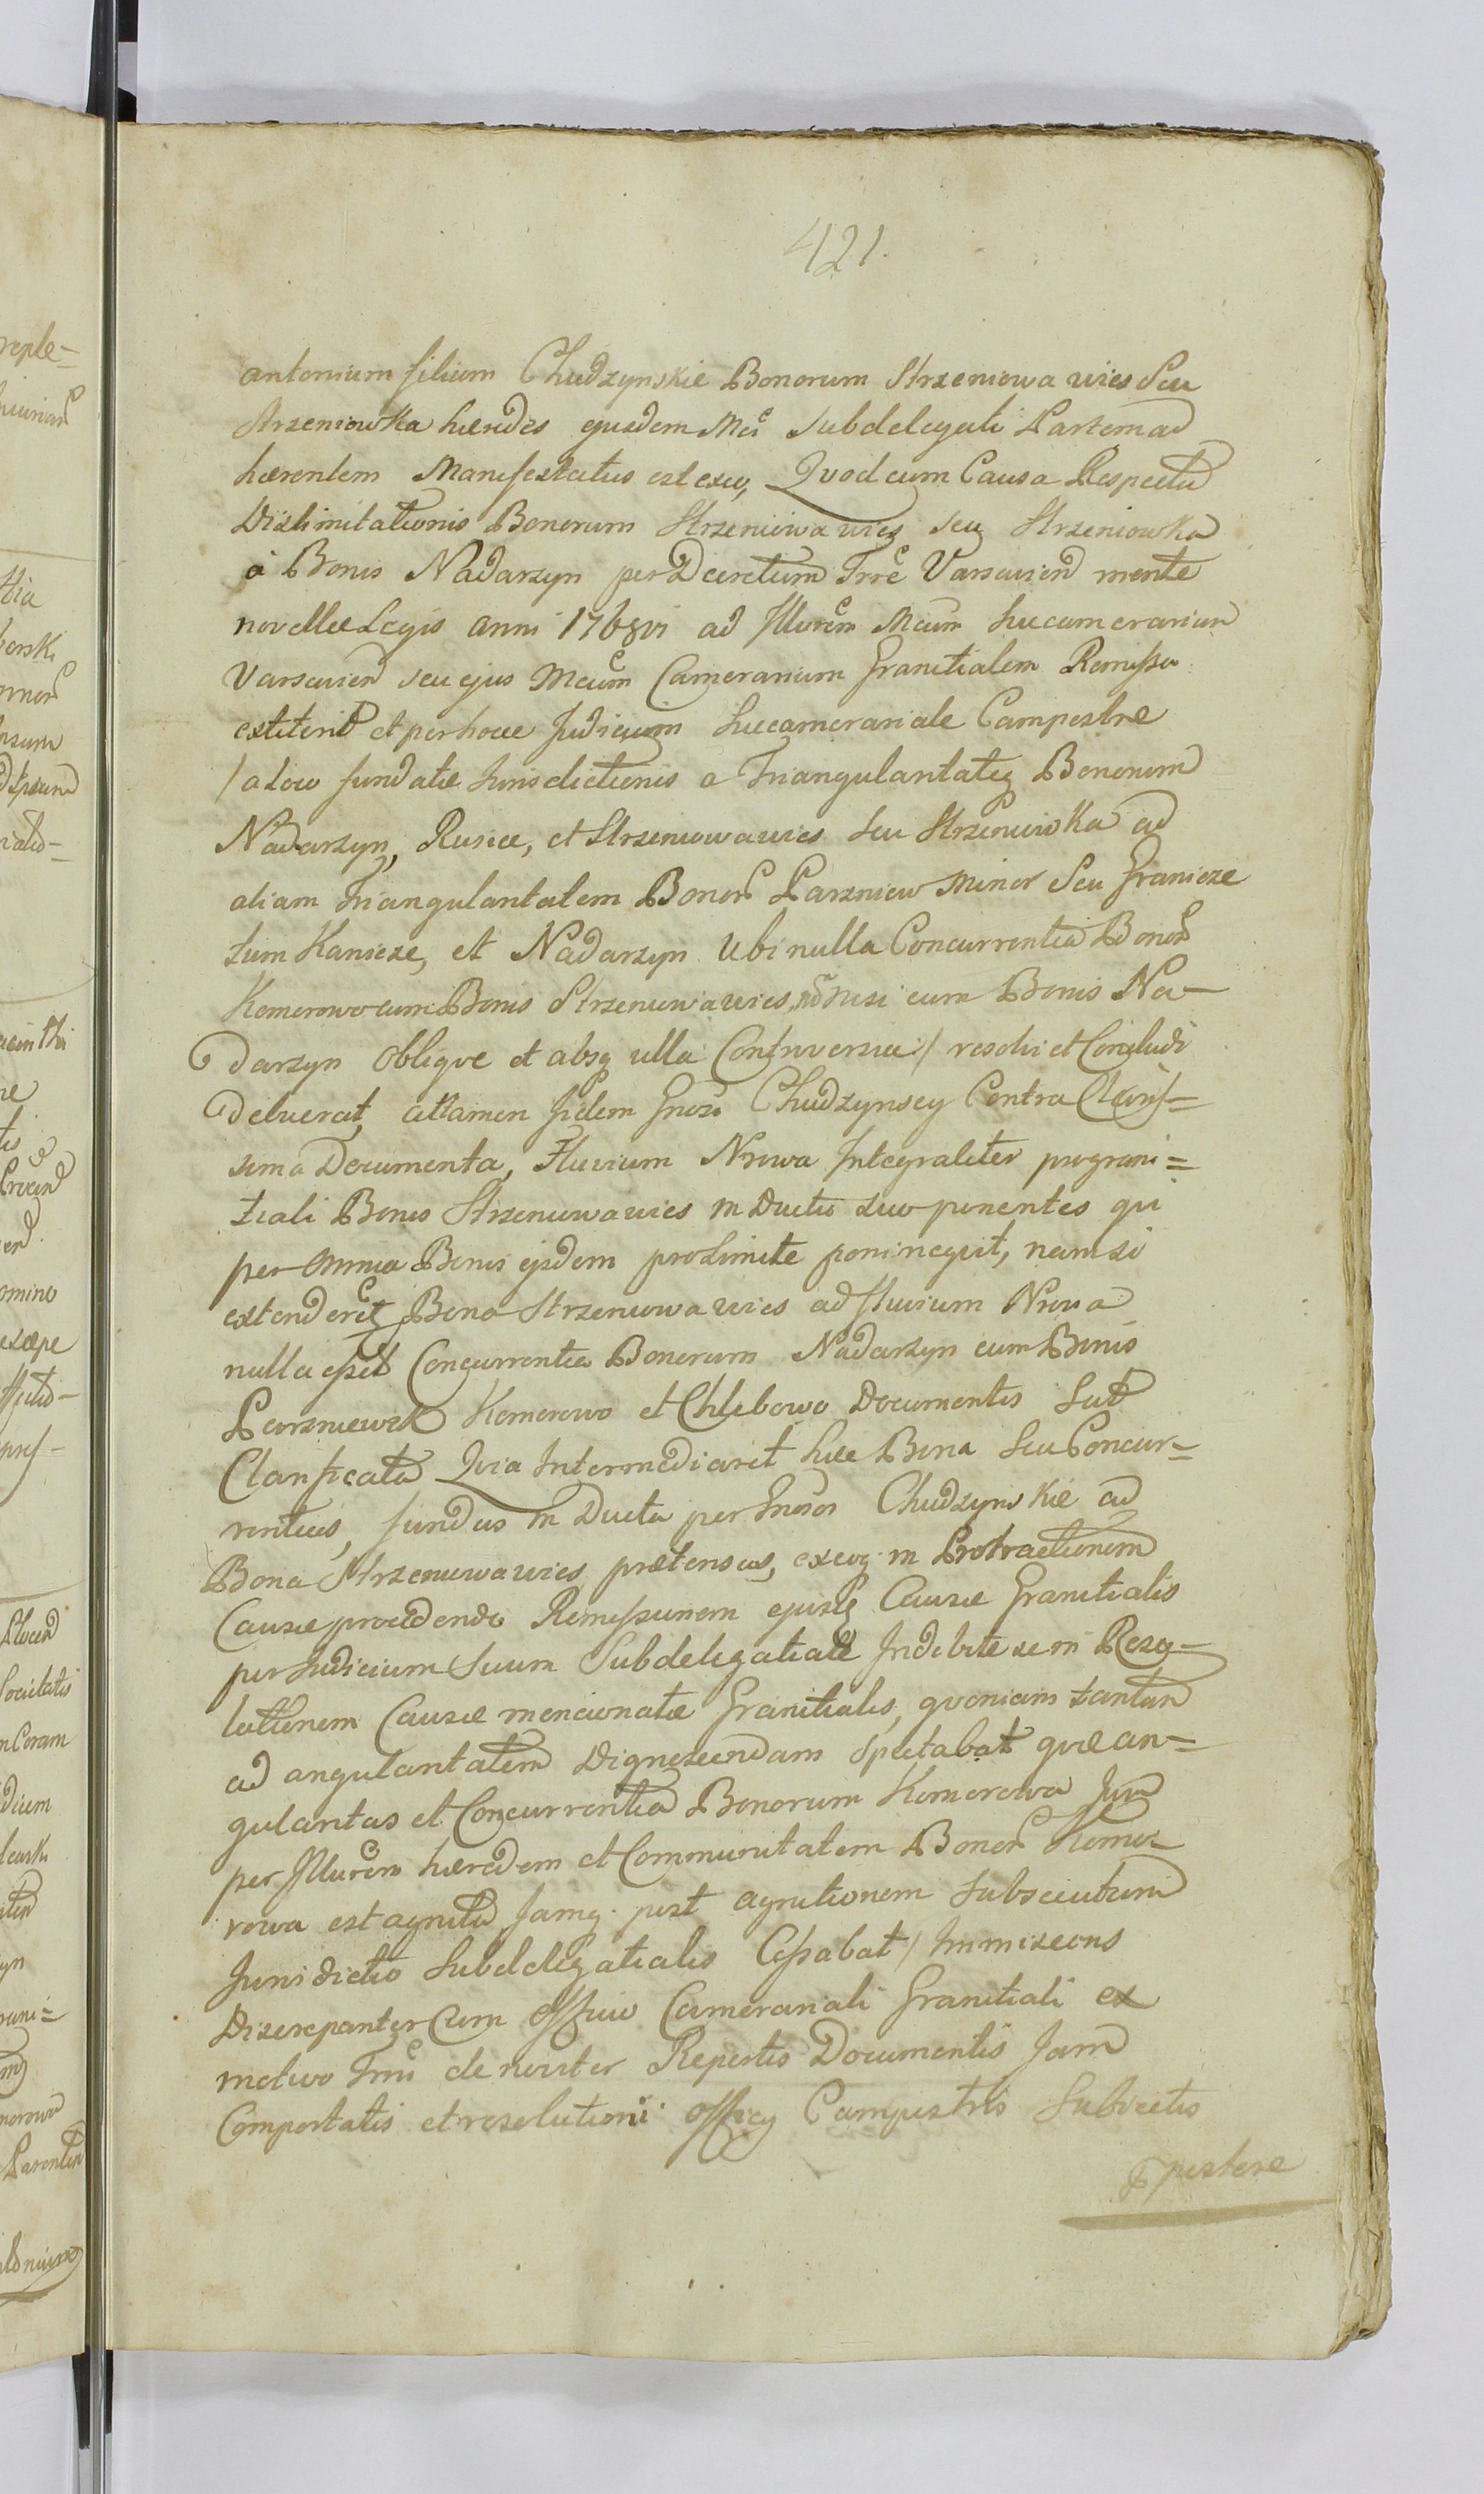 421.
antonium filium Chudzynskie Bonorum Strzeniowawies Seu
Strzeniowka hæredes ejusdem Mci Subdelegati Partem ad
hærentem Manifestatus est exeo, Quod cum Causa Respectu
Dislimitationis Bonorum Strzeniowawies seu Strzeniowka
à Bonis Nadarzyn per Decretum Trre Varsavien mente
novellæ Legis anni 1768vi ad Illurem Mcum Succamerarium
Varsavien seu ejus Mcum Camerarium Granitialem Remissa
extiterit et per hocce Judicium Succamerariale Campestre
/a Loco fundatæ Jurisdictionis a Triangularitateq Bonorum
Nadarzyn, Rusiec, et Strzeniowawies seu Strzeniowka ad
aliam Triangularitatem Bonor Parzniew Minor Seu Granicze
tum Kanicze, et Nadarzyn Ubi nulla Concurrentia Bonor
Komorowo cum Bonis Strzeniowawies, nisi cum Bonis Na-
darzyn oblique et absq ulla Controversia/ resolvi et Concludi
Debuerat, attamen fidem Gnosi Chudzynscy Contra Clariss=
sima Documenta, Fluvium Nrowa Integraliter pro grani=
tiali Bonis Strzeniowawies in Ductu suo ponentes qui
per omnia Bonis ejsdem pro Limite poni nequit, nam si
extenderet Bona Strzeniowawies ad fluvium Nrowa
nulla esset Concurrentia Bonorum Nadarzyn cum Bonis
Parzniewek Komorowo et Chlebowo Documentis Sat
Clarificata Quia Intermediaret hæc Bona Seu Concur=
rentias, fundus in Ducta per Gnosos Chudzynskie ad
Bona Strzeniowawies prætensus, exeoq in Protractionem
Causæ procedendo Remissionem ejusq Causæ Granitialis
per Judicium Suum Subdelegatiale Indebite se in Reso-
lutionem Causæ mencionatæ Granitialis, quoniam tantum
ad angularitatem Dignoscendam spectabat quæ an=
gularitas et Concurrentia Bonorum Komorowa Jam
per Illurem hæredem et Communitatem Bonor Komo=
rowa est agnita Jamq post agnitionem Subsecutam
Jurisdictio Subdelegatialis Cessabat / Immiscens
Discrepanter Cum officio Camerariali Granitiali ex
motivo Trni de noviter Repertis Documentis Jam
Comportatis et resolutioni officy Campestris Subjectis
postere